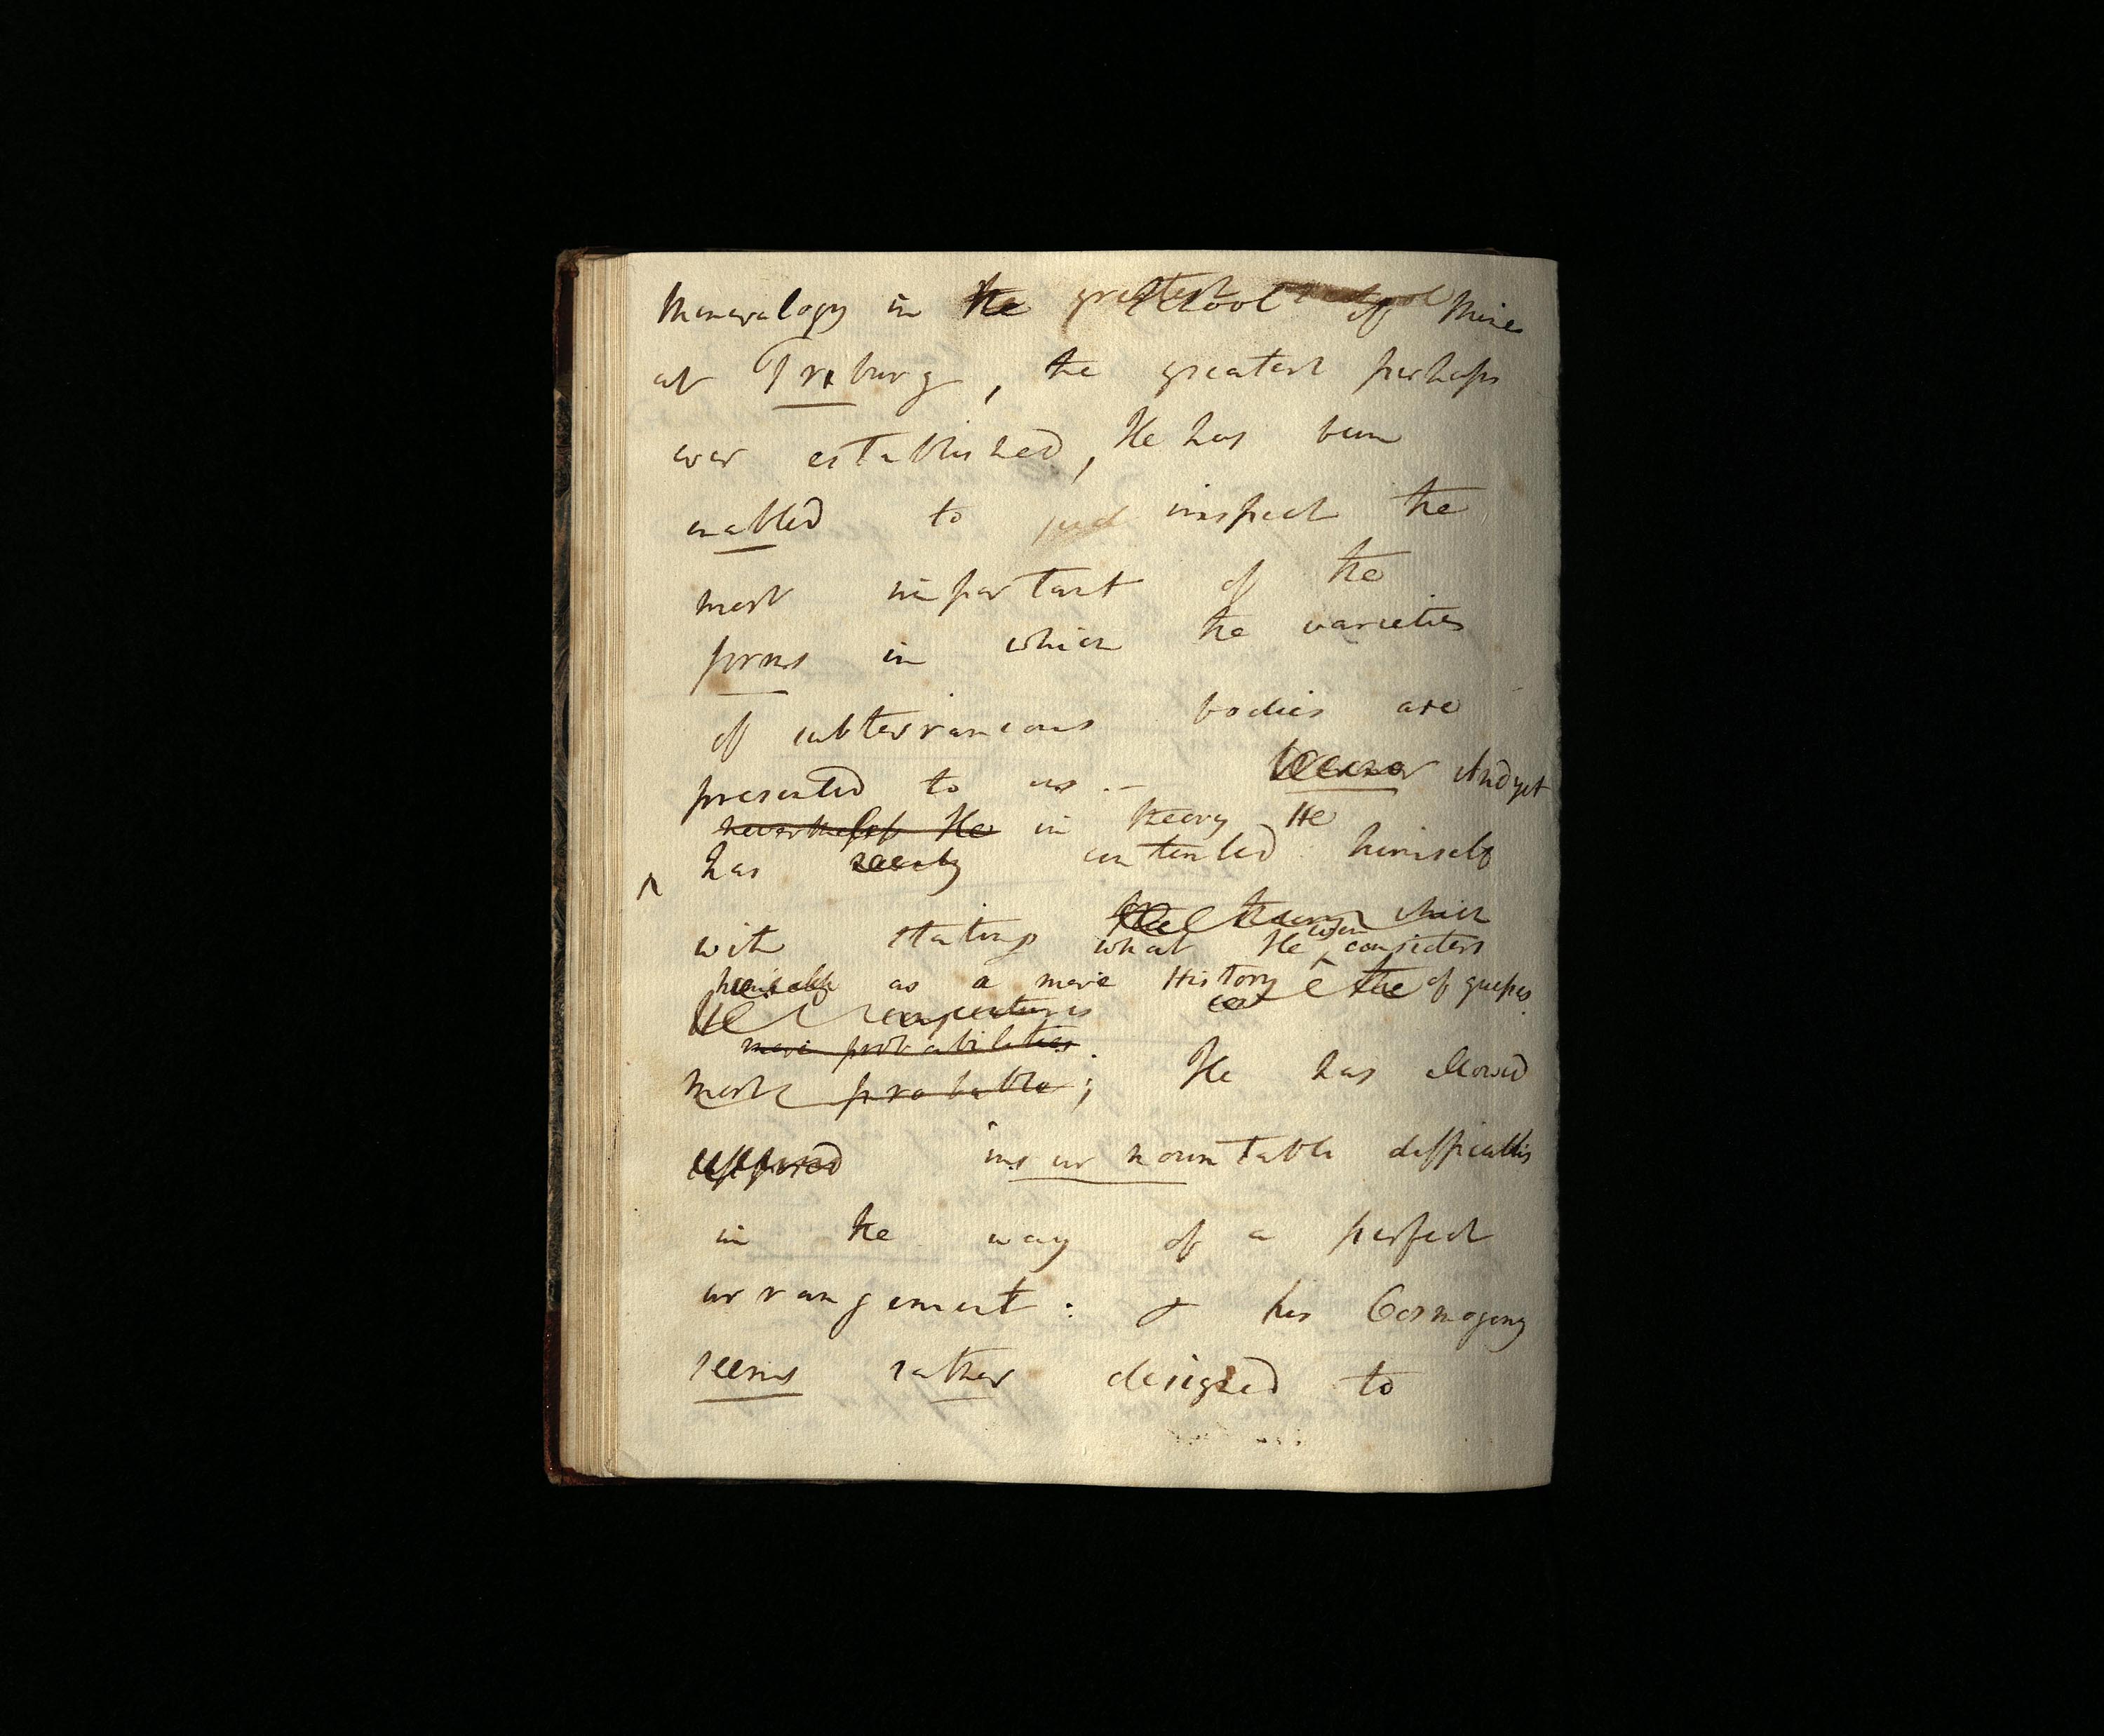 Mineralogy in the greatest School of Mines
at Friburg, the greatest perhaps
ever established, He has been
enabled to jud inspect the
most important of the
forms in which the varieties
of subterraneous bodies are
presented to us. – And yet
nevertheless He in theory He
has contented himself
with stating the theory which
what He even considers
himself as a mere History the of guesses
conjectures
mere probabilities
most probable; He has allowed
insurmountable difficulties
in the way of a perfect
arrangement: & his Cosmogony
seems rather designed to